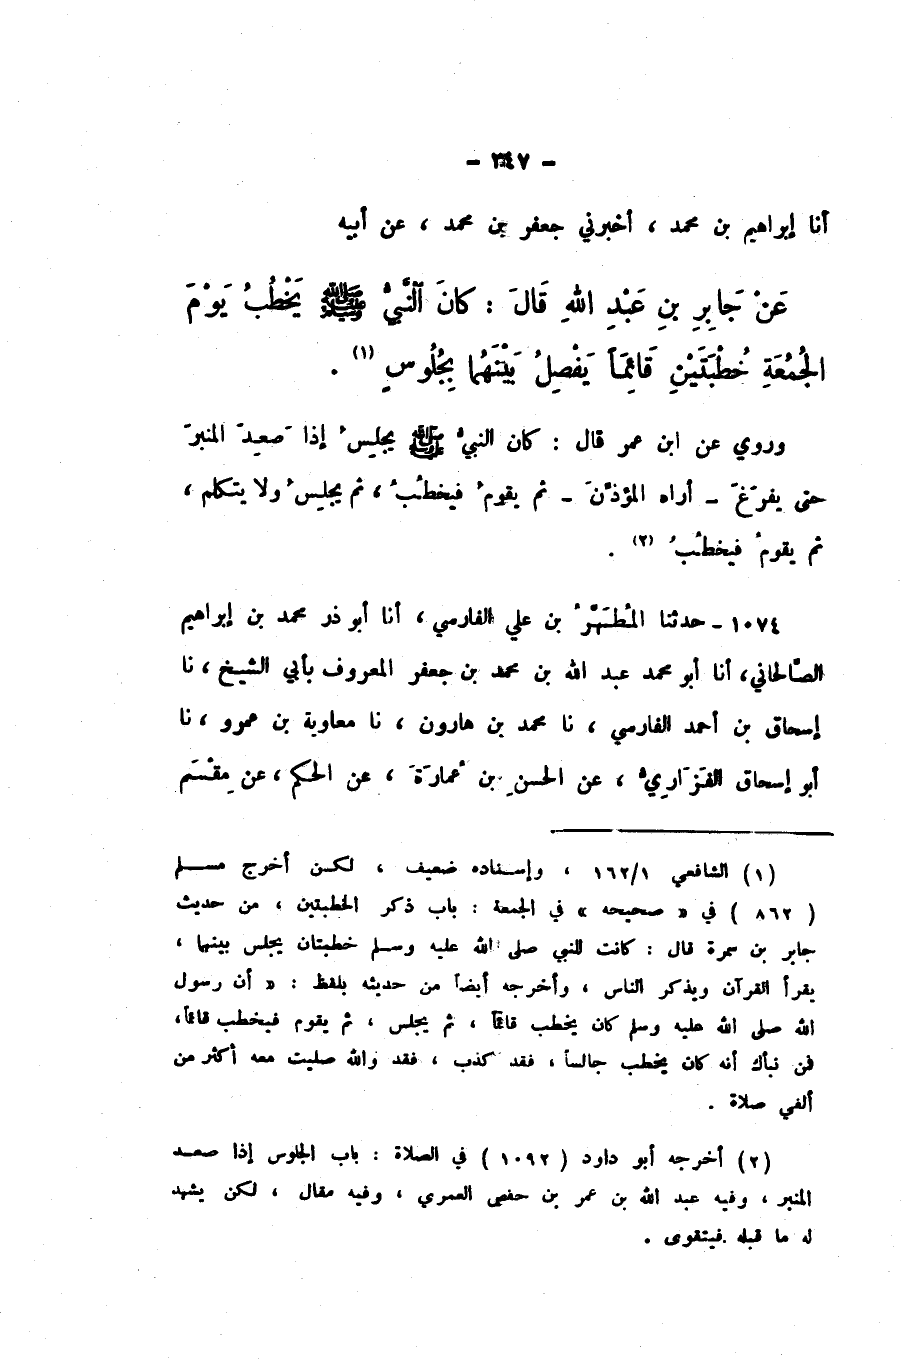 - ٣٤٧ -
أنا إبراهيم بن محمد ، أخبرني جعفر بن محمد ، عن أبيه
عَنْ جَابِرِ بنِ عَبْدِ اللهِ قَالَ : كانَ ٱلنَّبيُّ ﷺ يَخْطُبُ يَوْمَ
الجُمُعَةِ خُطْبَتَيْنِ قَائِمَاً يَفْصِلُ بَيْنَهُما بِجُلُوسٍ (١) .
وروي عن ابن عمر قال : كان النبيُّ ﷺ يجلِسُ إذا صَعِدَ المنبرَ
حتى يفرَغَ - أراه المؤذنَ - ثم يقومُ فيخطُبُ ، ثم يجلِسُ ولا يتكلم ،
ثم يقومُ فيخطُبُ (٢) .
١٠٧٤ - حدثنا المُطَهَّرُ بن علي الفارسي ، أنا أبو ذر محمد بن إبراهيم
الصَّالحاني ، أنا أبو محمد عبد الله بن محمد بن جعفر المعروف بأبي الشيخ ، نا
إسحاق بن أحمد الفارسي ، نا محمد بن هارون ، نا معاوية بن عمرو ، نا
أبو إسحاق الفَزَاريُّ ، عن الحسنِ بن عُمارَةَ ، عن الحكم ، عن مِقْسَم
(١) الشافعي ١٦٢/١ ، وإسناده ضعيف ، لكن أخرج مسلم
( ٨٦٢ ) في « صحيحه » في الجمعة : باب ذكر الخطبتين ، من حديث
جابر بن سمرة قال : كانت للنبي صلى الله عليه وسلم خطبتان يجلس بينهما ،
يقرأ القرآن ويذكر الناس ، وأخرجه أيضاً من حديثه بلفظ : « أن رسول
الله صلى الله عليه وسلم كان يخطب قائماً ، ثم يجلس ، ثم يقوم فيخطب قائماً،
فمن نبأك أنه كان يخطب جالساً ، فقد كذب ، فقد والله صليت معه أكثر من
ألفي صلاة .
(٢) أخرجه أبو داود ( ١٠٩٢ ) في الصلاة : باب الجلوس إذا صعد
المنبر ، وفيه عبد الله بن عمر بن حفص العمري ، وفيه مقال ، لكن يشهد
له ما قبله فيتقوى .